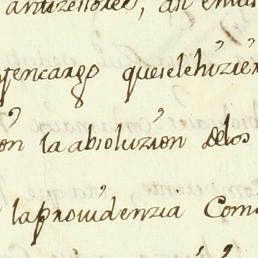 antezesores, asi en
encargo queselehizier
on la absoluzion delos
laprovidenzia Com